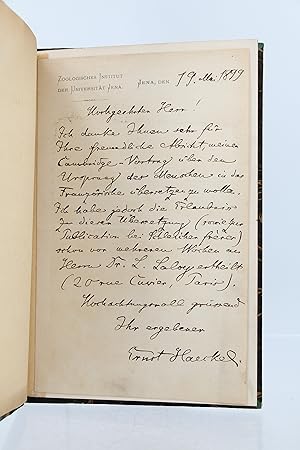 ZOOLOGISCHES INSTITUT
DER UNIVERSITÄT JENA.
JENA, DEN 19. Mai 1899
Hochgeehrter Herr!
Ich danke Ihnen sehr für
Ihre freundliche Absicht, meinen
Cambridge-Vortrag über den
Ursprung des Menschen in das
Französische übersetzen zu wollen.
Ich habe jedoch die Erlaubnis
zu dieser Übersetzung (sowie zur
Publication bei Schleicher frères)
schon vor mehreren Wochen an
Herrn Dr. L. Laloy ertheilt
(20 rue Cuvier, Paris).
Hochachtungsvoll grüssend
Ihr ergebener
Ernst Haeckel.